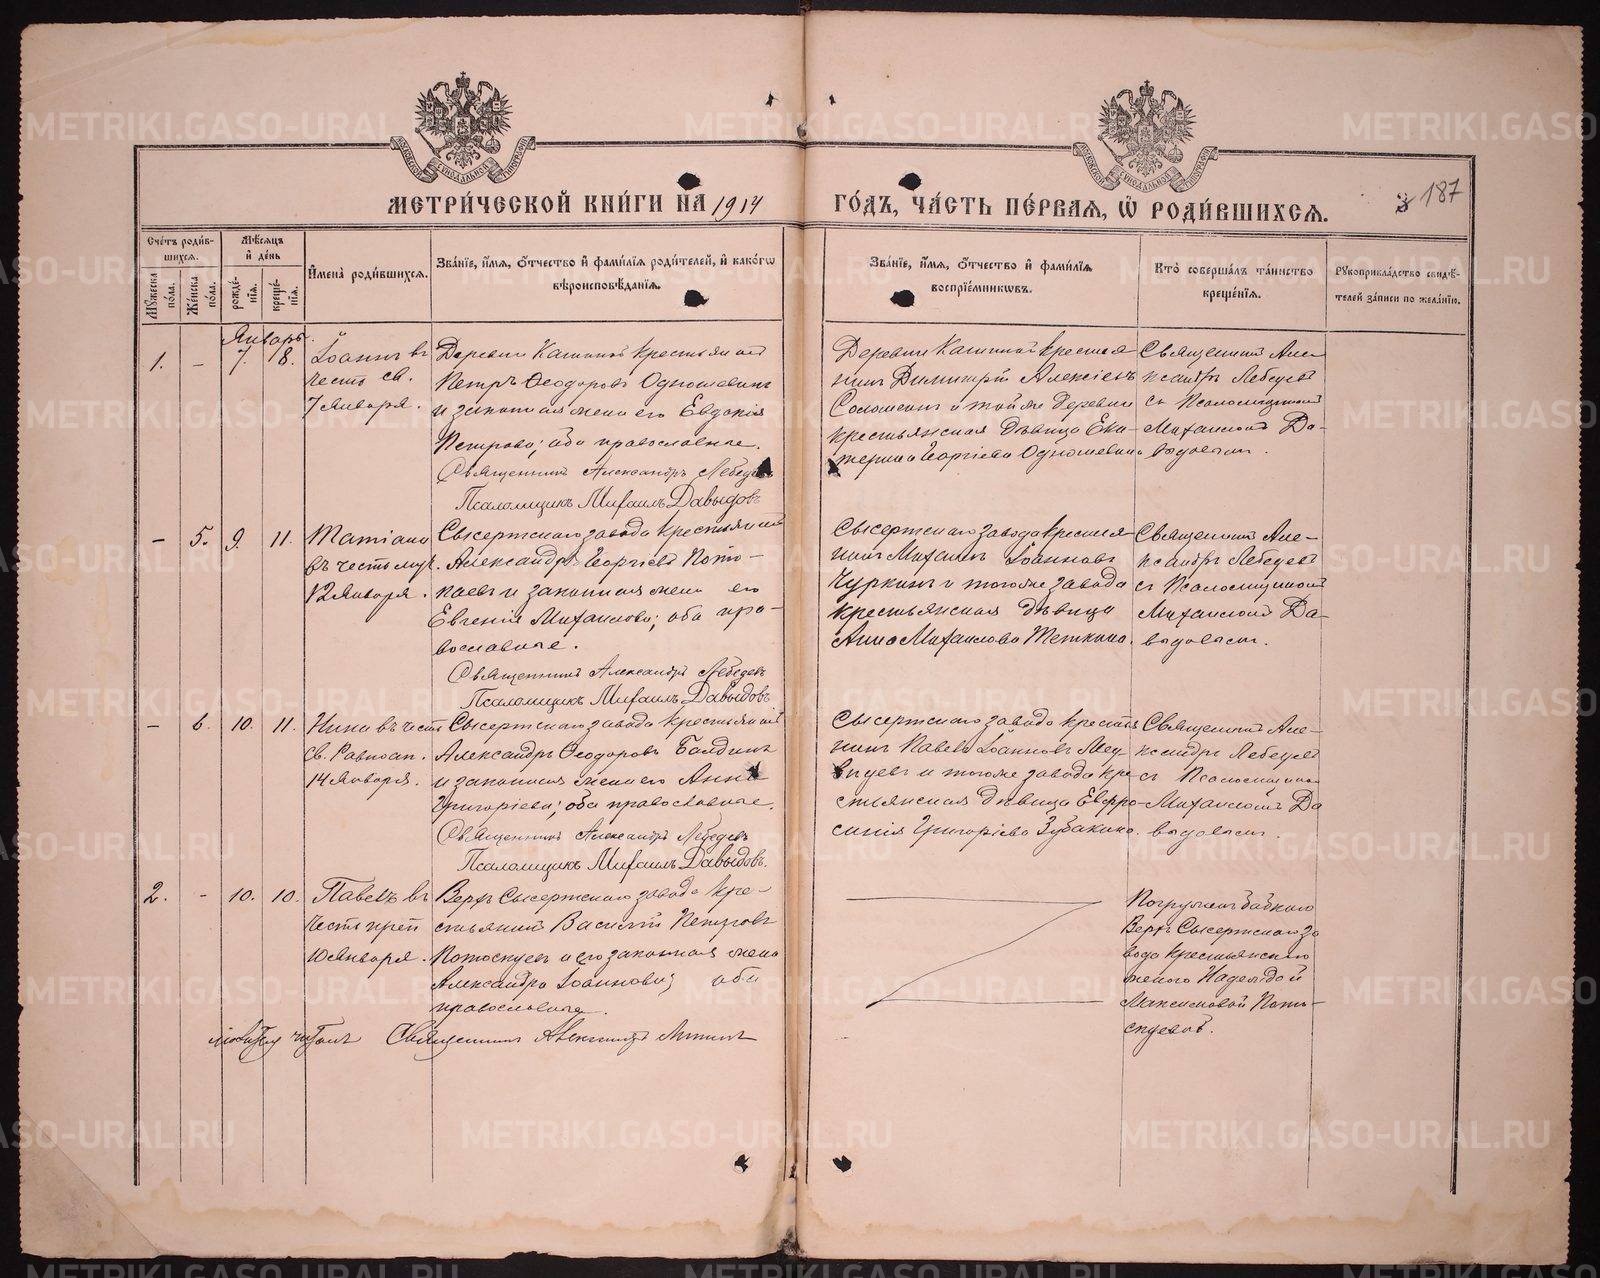 МЕТРИ́ЧЕСКОЙ КНИ́ГИ НА 1914 ГО́ДЪ, ЧА́СТЬ ПЕ́РВАЯ, Ѡ РОДИ́ВШИХСЯ.
187
Сче́тъ роди́в-
шихся.
Му́жеска по́ла.
Же́нска по́ла.
Мѣ́сяцъ и де́нь
рожде́-
нїя.
креще́-
нїя.
Имена̀ роди́вшихся.
Зва́нїе, и́мя, о́тчество и фами́лїя роди́телей, и како́гѡ
вѣроисповѣ́данїя.
Зва́нїе, и́мя, о́тчество и фами́лїя
воспрїе́мниковъ.
Кто̀ соверша́лъ та́инство
креще́нїя.
Рукоприкла́дство свидѣ́-
телей за́писи по жела́нїю.
Январь.
1. - 7. 8.
Іоаннъ въ
честь св.
7 Января.
Деревни Кашиной крестьянин
Петръ Ѳеодоровъ Одношевинъ
и законная жена его Евдокія
Петрова; оба православные.
Священникъ Александръ Лебедевъ
Псаломщикъ Михаилъ Давыдовъ
Деревни Кашиной крестья-
нинъ Димитрій Алексіевъ
и той же деревни
крестьянская дѣвица Ека-
терина Георгіева Одношевина
Священникъ Але-
ксандръ Лебедевъ
съ Псаломщикомъ
Михаиломъ Да-
выдовымъ.
- 5. 9. 11.
Татіана
въ честь муч.
12 Января.
Сысертскаго завода крестьянинъ
Александръ Георгіевъ
и законная жена его
Евгенія Михаилова; оба пра-
вославные.
Священникъ Александръ Лебедевъ
Псаломщикъ Михаилъ Давыдовъ
Сысертскаго завода крестья-
нинъ Михаилъ Іоанновъ
Чуркинъ и того же завода
крестьянская дѣвица
Анна Михаилова Теткина.
Священникъ Але-
ксандръ Лебедевъ
съ Псаломщикомъ
Михаиломъ Да-
выдовымъ.
- 6. 10. 11.
Нина въ честь
св. Равноап.
14 Января.
Сысертскаго завода крестьянинъ
Александръ Ѳеодоровъ Балдинъ
и законная жена его Анна
Григоріева; оба православные.
Священникъ Александръ Лебедевъ
Псаломщикъ Михаилъ Давыдовъ.
Сысертскаго завода крестья-
нинъ Павелъ Іоанновъ Мед-
вѣдевъ и того же завода кре-
стьянская дѣвица Евфро-
синія Григоріева Зубакина.
Священникъ Але-
ксандръ Лебедевъ
съ Псаломщикомъ
Михаиломъ Да-
выдовымъ.
2. - 10. 10.
Павелъ въ
честь преп
10 Января.
Верхъ Сысертскаго завода кре-
стьянинъ Василій Петровъ
Потоскуевъ и его законная жена
Александра Іоаннова; оба
православные.
Погруженъ бабкою
Верхъ Сысертскаго за
вода крестьянскою
женою Надеждой
Максимовой Пото-
скуевой.
Священникъ Александръ
METRIKI.GASO-URAL.RU